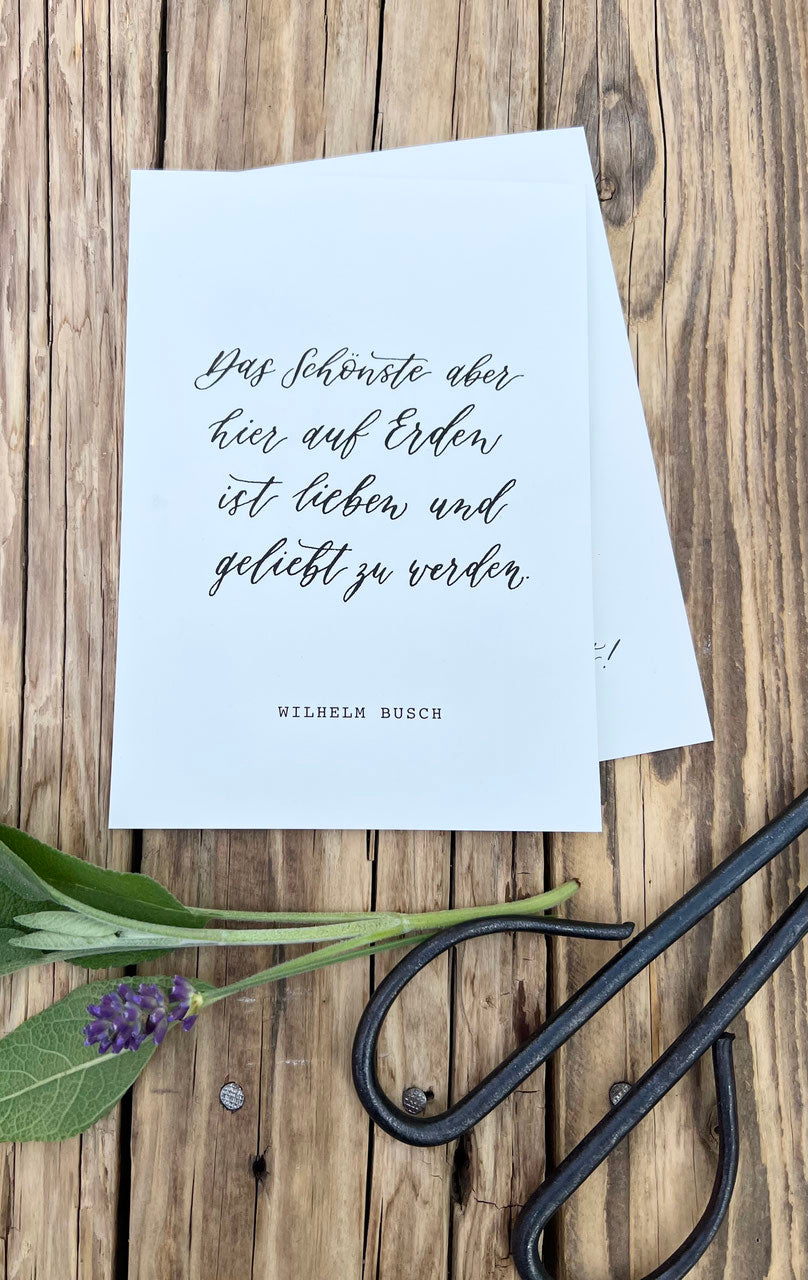 Das Schönste aber
hier auf Erden
ist lieben und
geliebt zu werden.
WILHELM BUSCH